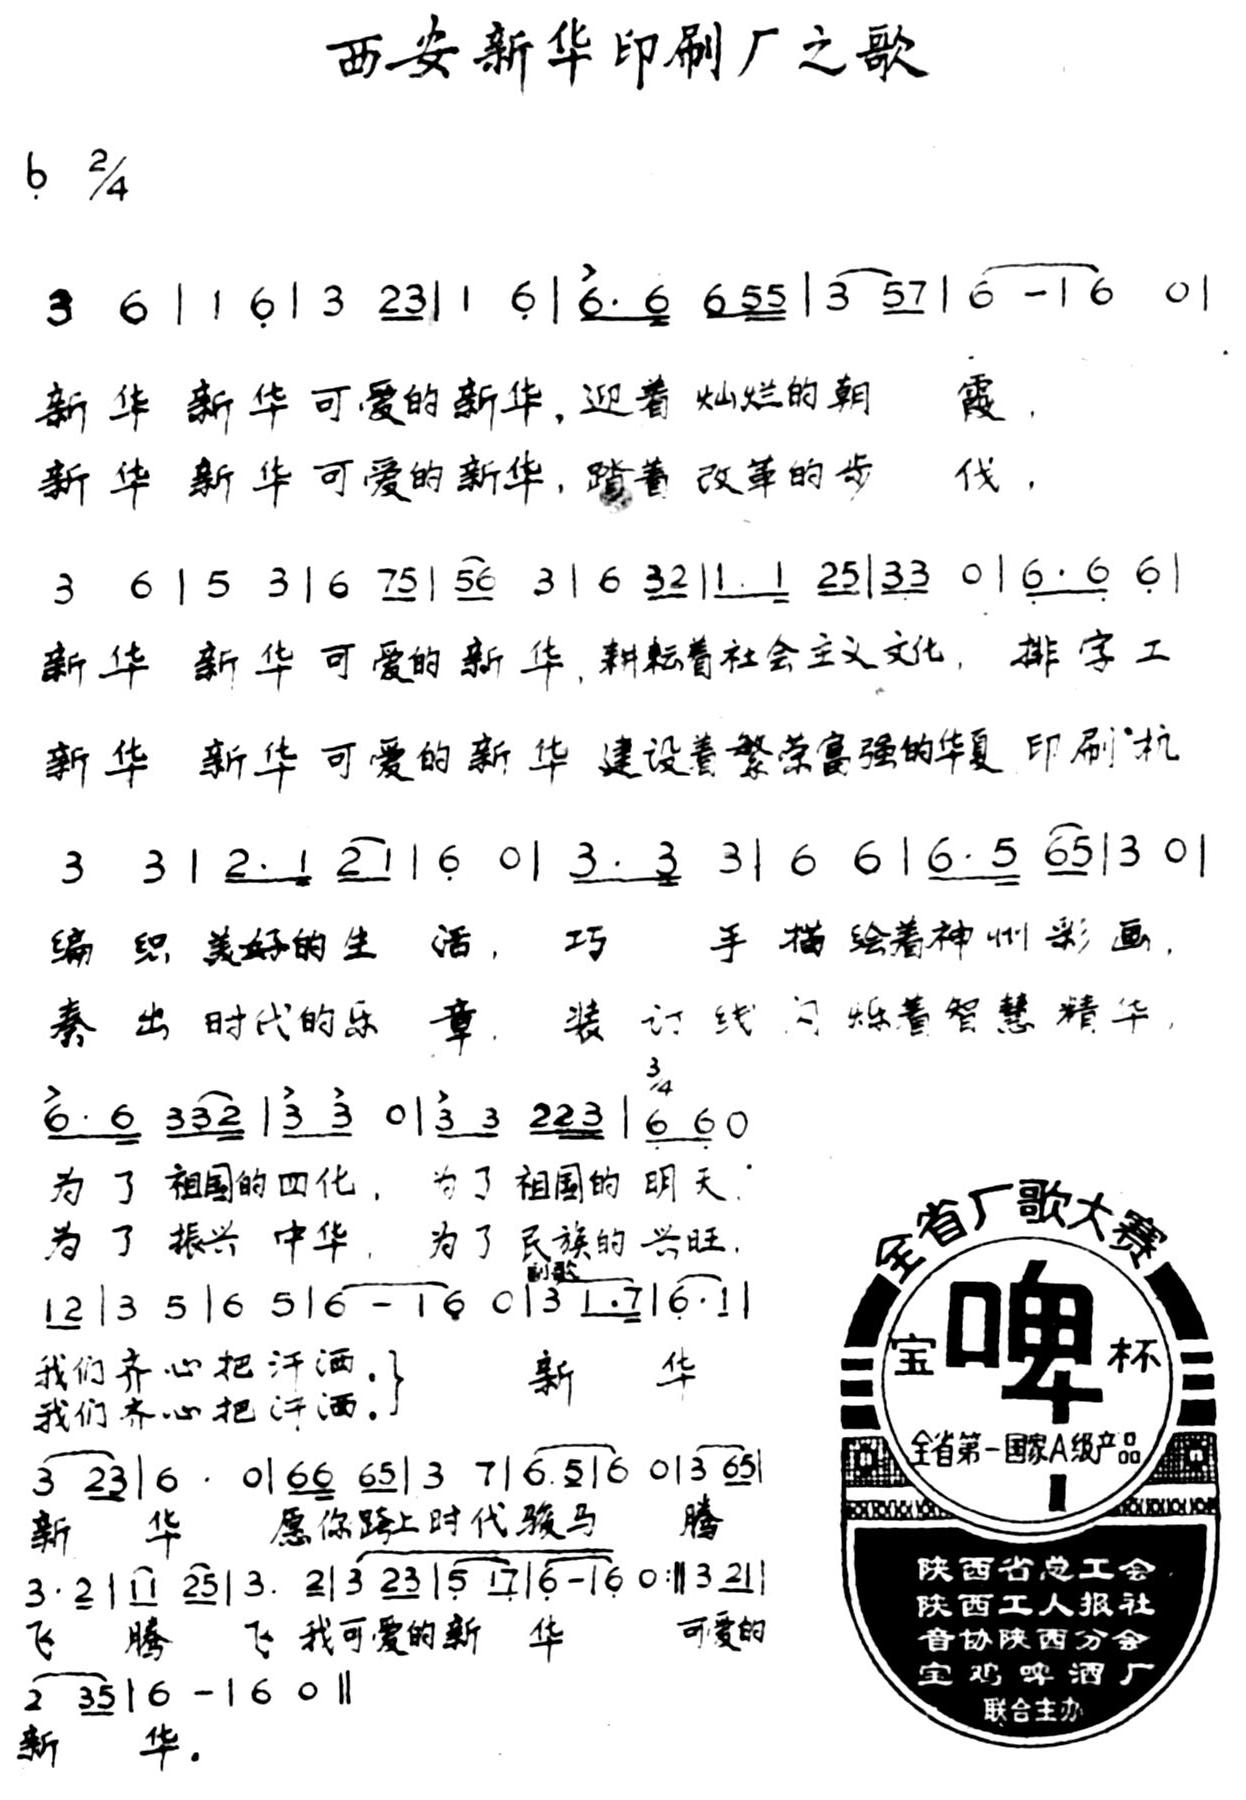 西安新华印刷厂之歌
6 2/4
3 6 | 1 6 | 3 23 | 1 6 | 6·6 655 | 3 57 | 6 - | 6 0 |
新华 新华 可爱的新华,迎着灿烂的朝 霞,
新华 新华 可爱的新华,踏着改革的步 伐,
3 6 | 5 3 | 6 75 | 56 3 | 6 32 | 1.1 25 | 33 0 | 6·6 6 |
新华 新华 可爱的新华,耕耘着社会主义文化, 排字工
新华 新华 可爱的新华 建设着繁荣富强的华夏 印刷机
3 3 | 2·1 21 | 6 0 | 3·3 3 | 6 6 | 6·5 65 | 3 0 |
编织美好的生 活, 巧 手描绘着神州彩画,
奏出时代的乐 章, 装订线闪烁着智慧精华,
3/4
6·6 332 | 3 3 0 | 3 3 223 | 6 6 0
为了祖国的四化, 为了祖国的明天,
为了振兴中华, 为了民族的兴旺,
副歌
12 | 3 5 | 6 5 | 6 - | 6 0 | 3 1·7 | 6·1 |
我们齐心把汗洒.} 新 华
我们齐心把汗洒.
3 23 | 6 · 0 | 66 65 | 3 7 | 6.5 | 6 0 | 3 65 |
新 华 愿你跨上时代骏马 腾
3·2 | 11 25 | 3. 2 | 3 23 | 5 17 | 6 - | 6 0 :|| 3 21 |
飞 腾 飞 我可爱的新 华 可爱的
2 35 | 6 - | 6 0 ||
新 华.
全省厂歌大赛
宝啤杯
全省第一国家A级产品
陕西省总工会
陕西工人报社
音协陕西分会
宝鸡啤酒厂
联合主办